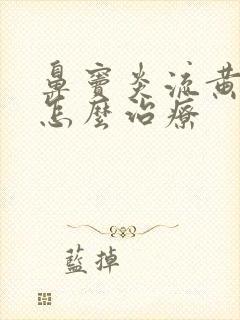 鼻窦炎流黄
怎麼治療
藍掉